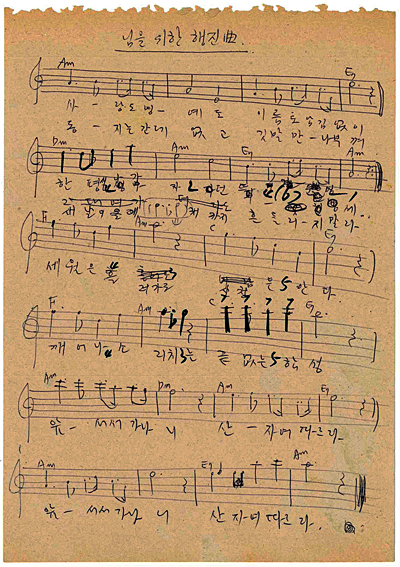 님을 위한 행진曲.
Am E7
사 - 랑도 명 - 예도 이름도 남김 없이
동 - 지는 간데 없고 깃발만 - 나부껴
Dm Am E7 Am
한 평생
새 날이 올 때 까지 흔들 - 리지 말라 -
F Am C E7
세월은 흘러가도 은 안다
F Am C E7
깨어나 소리치는 끝 없는 함성
Am Dm Am E7
앞 - 서서 가나니 산 - 자여 따르라 -
Am E7 Am
앞 - 서서 가나니 산 자여 따르라.